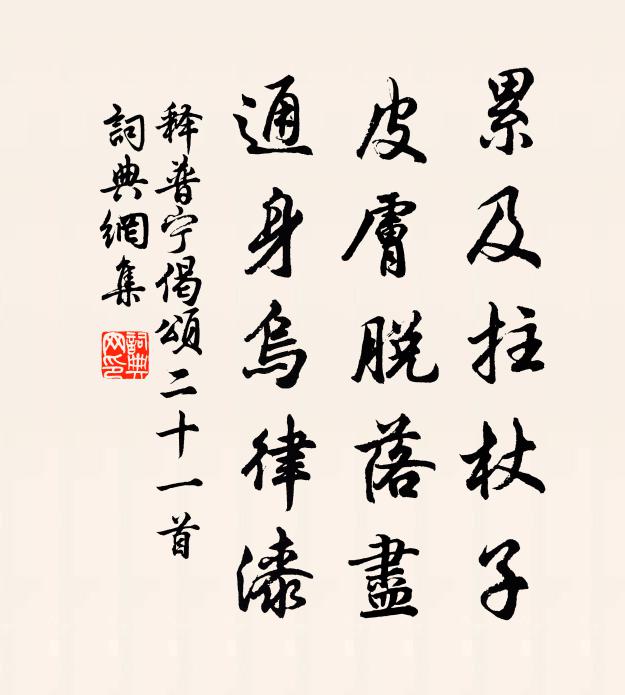 累及拄杖子
皮膚脫落盡
通身烏律漆
释普宁偈頌二十一首
詞典網集
詞典网印